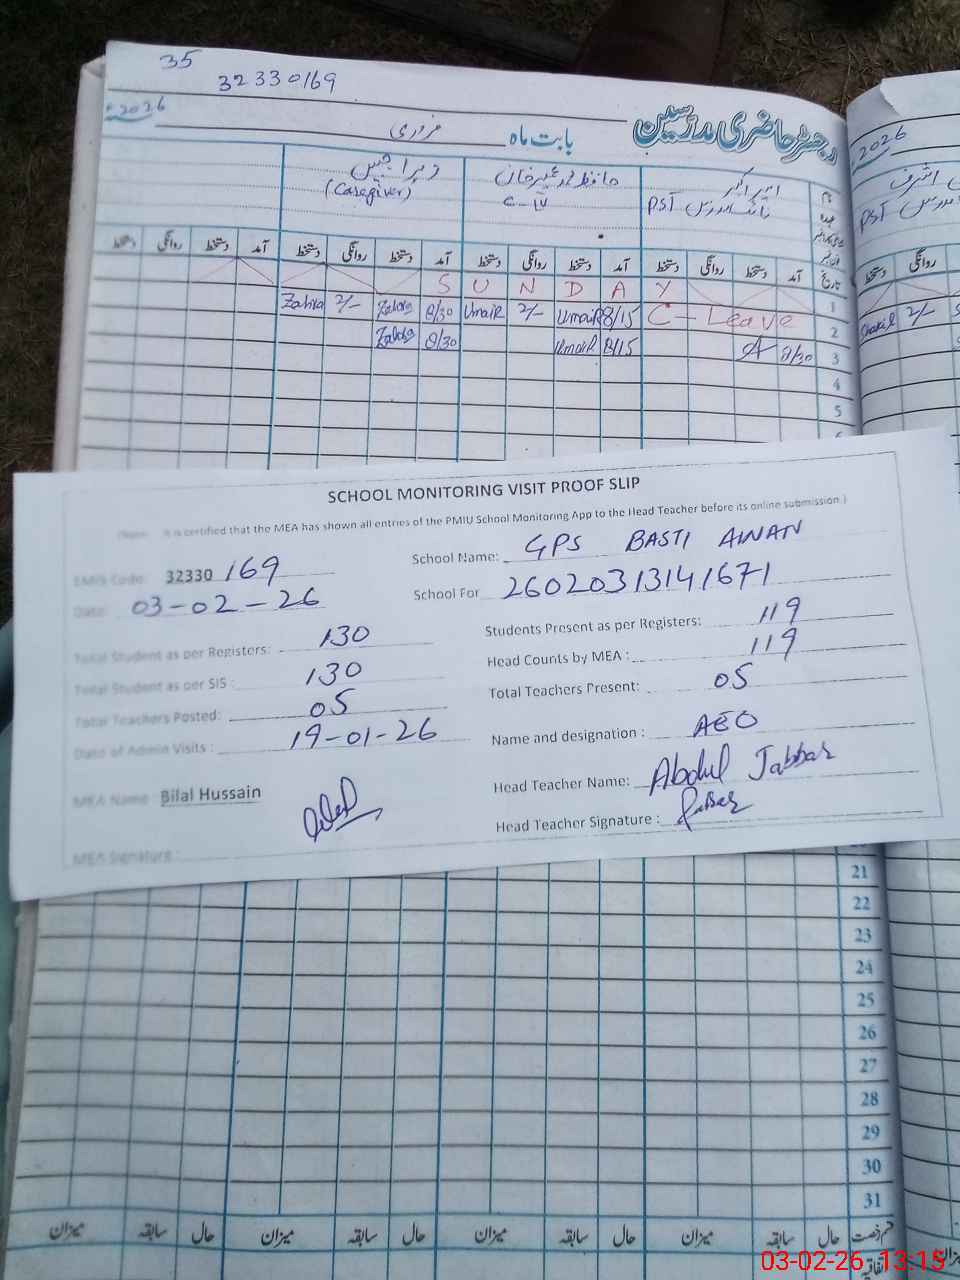 35
32330169
2026
رجسٹر حاضری مدرسین
بابت ماہ فروری
2026
امیر اکبر
PST
حافظ محمد عمیر خان
C-IV
زہرا جبیں
(Caregiver)
PST
تاریخ آمد دستخط روانگی دستخط آمد دستخط روانگی دستخط آمد دستخط روانگی دستخط آمد دستخط روانگی دستخط
روانگی دستخط
1 S U N D A Y
2 C - Leave 8/15 Umair 2/- Umair 8/30 Zahra 2/- Zahra
Shakil 2/-
3 8/30 A 8/15 Umair 8/30 Zahra
4
5
SCHOOL MONITORING VISIT PROOF SLIP
It is certified that the MEA has shown all entries of the PMIU School Monitoring App to the Head Teacher before its online submission.)
EMIS Code: 32330 169
School Name: GPS BASTI AWAN
Date: 03-02-26
School For 26020313141671
Total Student as per Registers: 130
Students Present as per Registers: 119
Total Student as per SIS : 130
Head Counts by MEA : 119
Total Teachers Posted: 05
Total Teachers Present: 05
Date of Admin Visits : 19-01-26
Name and designation : AEO
MEA Name: Bilal Hussain
Head Teacher Name: Abdul Jabbar
MEA Signature :
Head Teacher Signature : Jabbar
21
22
23
24
25
26
27
28
29
30
31
قسم رخصت حال سابقہ میزان حال سابقہ میزان حال سابقہ میزان حال سابقہ میزان
اتفاقیہ
03-02-26 13:15